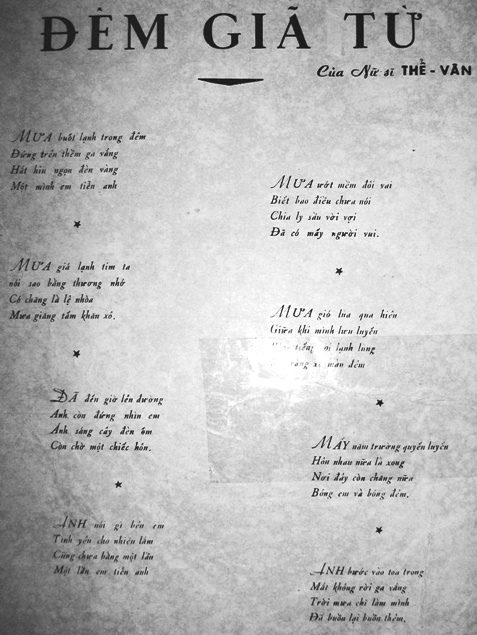 ĐÊM GIÃ TỪ
Của Nữ sĩ THẾ-VÂN
MƯA buốt lạnh trong đêm
Đứng trên thềm ga vắng
Hắt hiu ngọn đèn vàng
Một mình em tiễn anh
MƯA giá lạnh tim ta
nói sao bằng thương nhớ
Có chăng là lệ nhòa
Mưa giăng tấm khăn xô.
ĐÃ đến giờ lên đường
Anh còn đứng nhìn em
Ánh sáng cây đèn ốm
Còn chờ một chiếc hôn.
ANH nói gì bên em
Tình yêu cho nhiều lắm
Cũng chưa bằng một lần
Một lần em tiễn anh
MƯA ướt mềm đôi vai
Biết bao điều chưa nói
Chia ly sầu vời vợi
Đã có mấy người vui.
MƯA gió lùa qua hiên
Giữa khi mình lưu luyến
lạnh lùng
màn đêm
MẤY năm trường quyến luyến
Hôn nhau nữa là xong
Nơi đây còn chăng nữa
Bóng em và bóng đêm.
ANH bước vào toa trong
Mắt không rời ga vắng
Trời mưa chi lắm mình
Đã buồn lại buồn thêm.